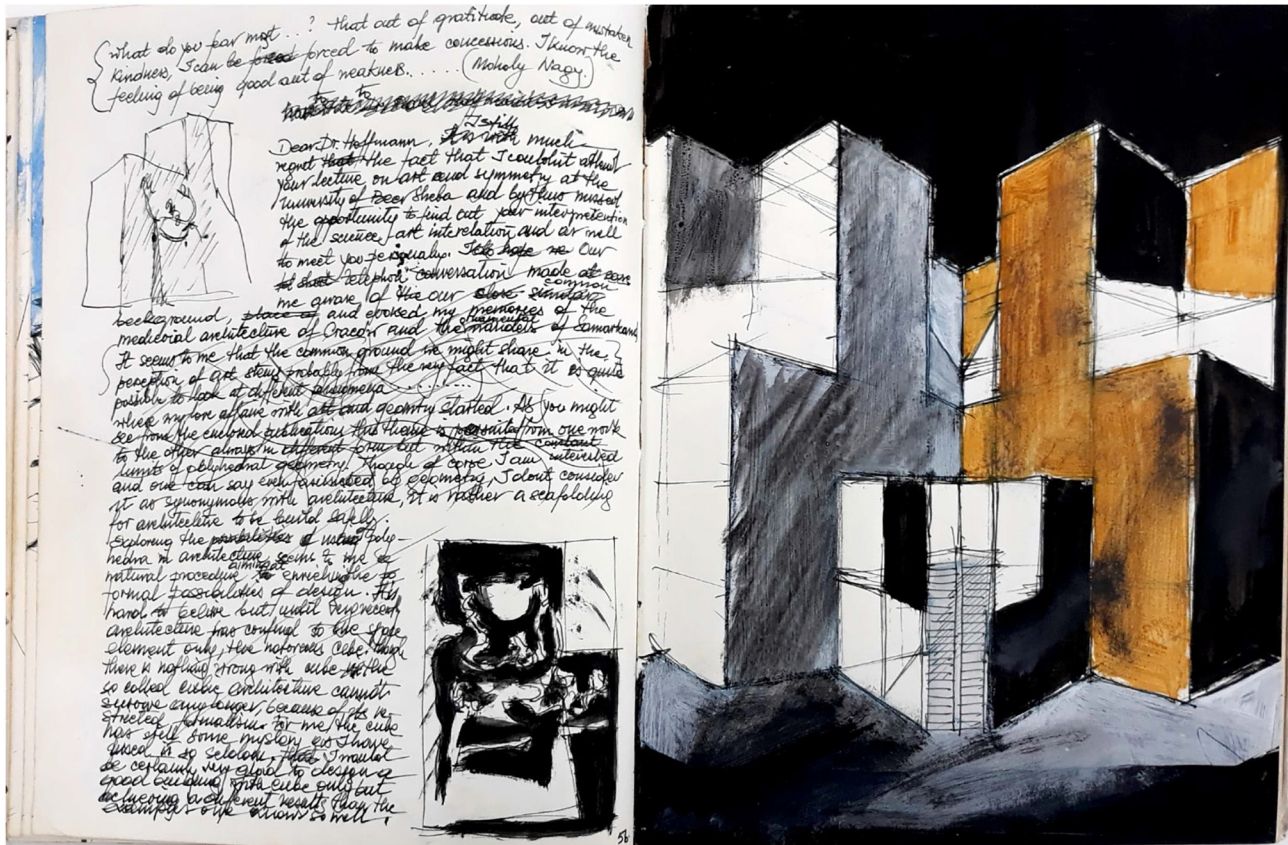 What do you fear most...? That out of gratitude, out of mistaken
kindness, I can be forced to make concessions. I know the
feeling of being good out of weakness...... (Moholy Nagy.)
I still
Dear Dr. Hoffmann, It is with much
regret that the fact that I couldn't attend
your lecture on art and symmetry at the
University of Beer Sheba and by thus missed
the opportunity to find out your interpretation
of the science, art interelation and as well
to meet you personaly. Our
telephon conversation made
common
me aware of the our close similar
background, and evoked my memories of the
ornamental
medieval architecture of Cracow and the of Samarkand
It seems to me that the common ground we might share in the
perception of art stems probably from the very fact that it is quite
possible to look at different phenomena..........
where my love affaire with art and geometry started. As you might
see from the enclosed publications this theme is from one work
to the other always in different form but within the constant
limits of polyhedral geometry. Though of corse I am interested
and one can say even fascinated by geometry, I dont consider
it as synonymous with architecture, it is rather a scafolding
for architecture to be build safely.
Exploring the possibilities of poly-
hedra in architecture seems to me a
aiming at
natural procedure enriching the
formal possibilities of design. It is
hard to belive but until very recently
architecture has confined to one
element only, the notorious cube, though
there is nothing wrong with cube the
so called cubic architecture cannot
survive any longer, because of its re-
stricted formalism. For me the cube
has still some mystery as I have
used it so seldom, that I would
be certainly very glad to design a
good building with cube only but
achieving a different result than the
examples one knows so well.
56